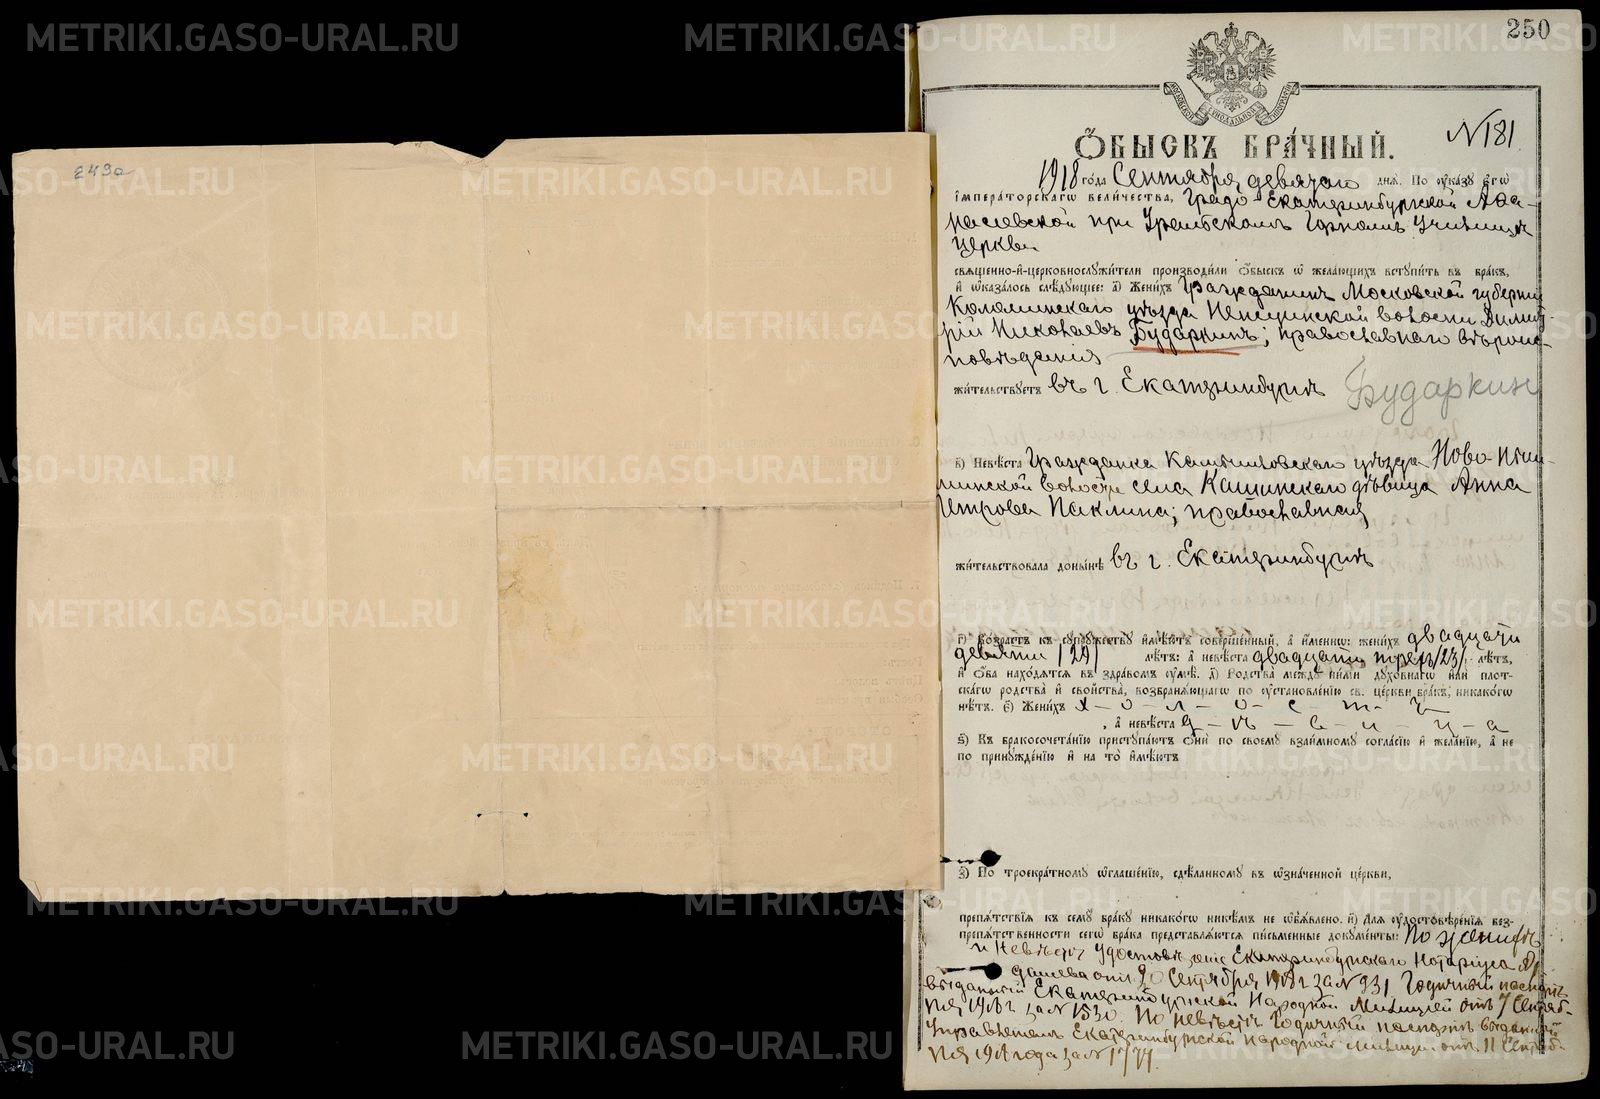 250
249а
МОСКОВСКОЙ СѴНОДАЛЬНОЙ ТИПОГРАФІИ
№ 181
ОБЫСКЪ БРАЧНЫЙ.
1918 года Сентября девятаго дня. По указу Егѡ
Императорскагѡ Величества, Градо-Екатеринбургской Афа-
насіевской при Уральскомъ Горномъ Училищѣ
Церкви
священно-и-церковнослужители производили обыскъ ѡ желающихъ вступить въ бракъ,
и ѡказалось слѣдующее: а) Женихъ Гражданинъ Московской губерніи
Коломинскаго уѣзда Непецинской волости Димит-
рій Николаевъ Бударкинъ; православнаго вѣроис-
повѣданія
жительствуетъ въ г. Екатеринбургѣ
Бударкин
в) Невѣста Гражданка Камышловскаго уѣзда Ново-Пыш-
минской волости села Кашинскаго дѣвица Анна
Петрова Паклина; православная
жительствовала донынѣ въ г. Екатеринбургѣ
г) Возрастъ къ супружеству имѣютъ совершенный, а именнѡ: женихъ двадцати
девяти /29/ лѣтъ: а невѣста двадцати трехъ /23/ лѣтъ,
и оба находятся въ здравомъ умѣ. д) Родства между ними духовнагѡ или плот-
скагѡ родства и свойства, возбраняющагѡ по установленію св. церкви бракъ, никакогѡ
нѣтъ. є) Женихъ х-о-л-о-с-т-ъ
, а невѣста д-ѣ-в-и-ц-а
ѕ) Къ бракосочетанію приступаютъ они по своему взаимному согласію и желанію, а не
по принужденію и на то имѣютъ
з) По троекратному ѡглашенію, сдѣланному въ ѡзначенной церкви,
препятствія къ сему браку никакогѡ никѣмъ не ѡбъявлено. и) Для удостовѣренія без-
препятственности сегѡ брака представляются письменные документы: По женихѣ
и Невѣстѣ Удостовѣреніе Екатеринбургскаго Нотаріуса
отъ 20 Сентября 1918 г за № 931 Годичный паспортъ
выданный Екатеринбургской Народной Милиціей отъ 7 Сентяб-
ря 1918 г за № 1530. По невѣстѣ Годичный паспортъ выданный
Управленіемъ Екатеринбургской народной милиціи отъ 11 Сентяб-
ря 1918 года за № 1777.